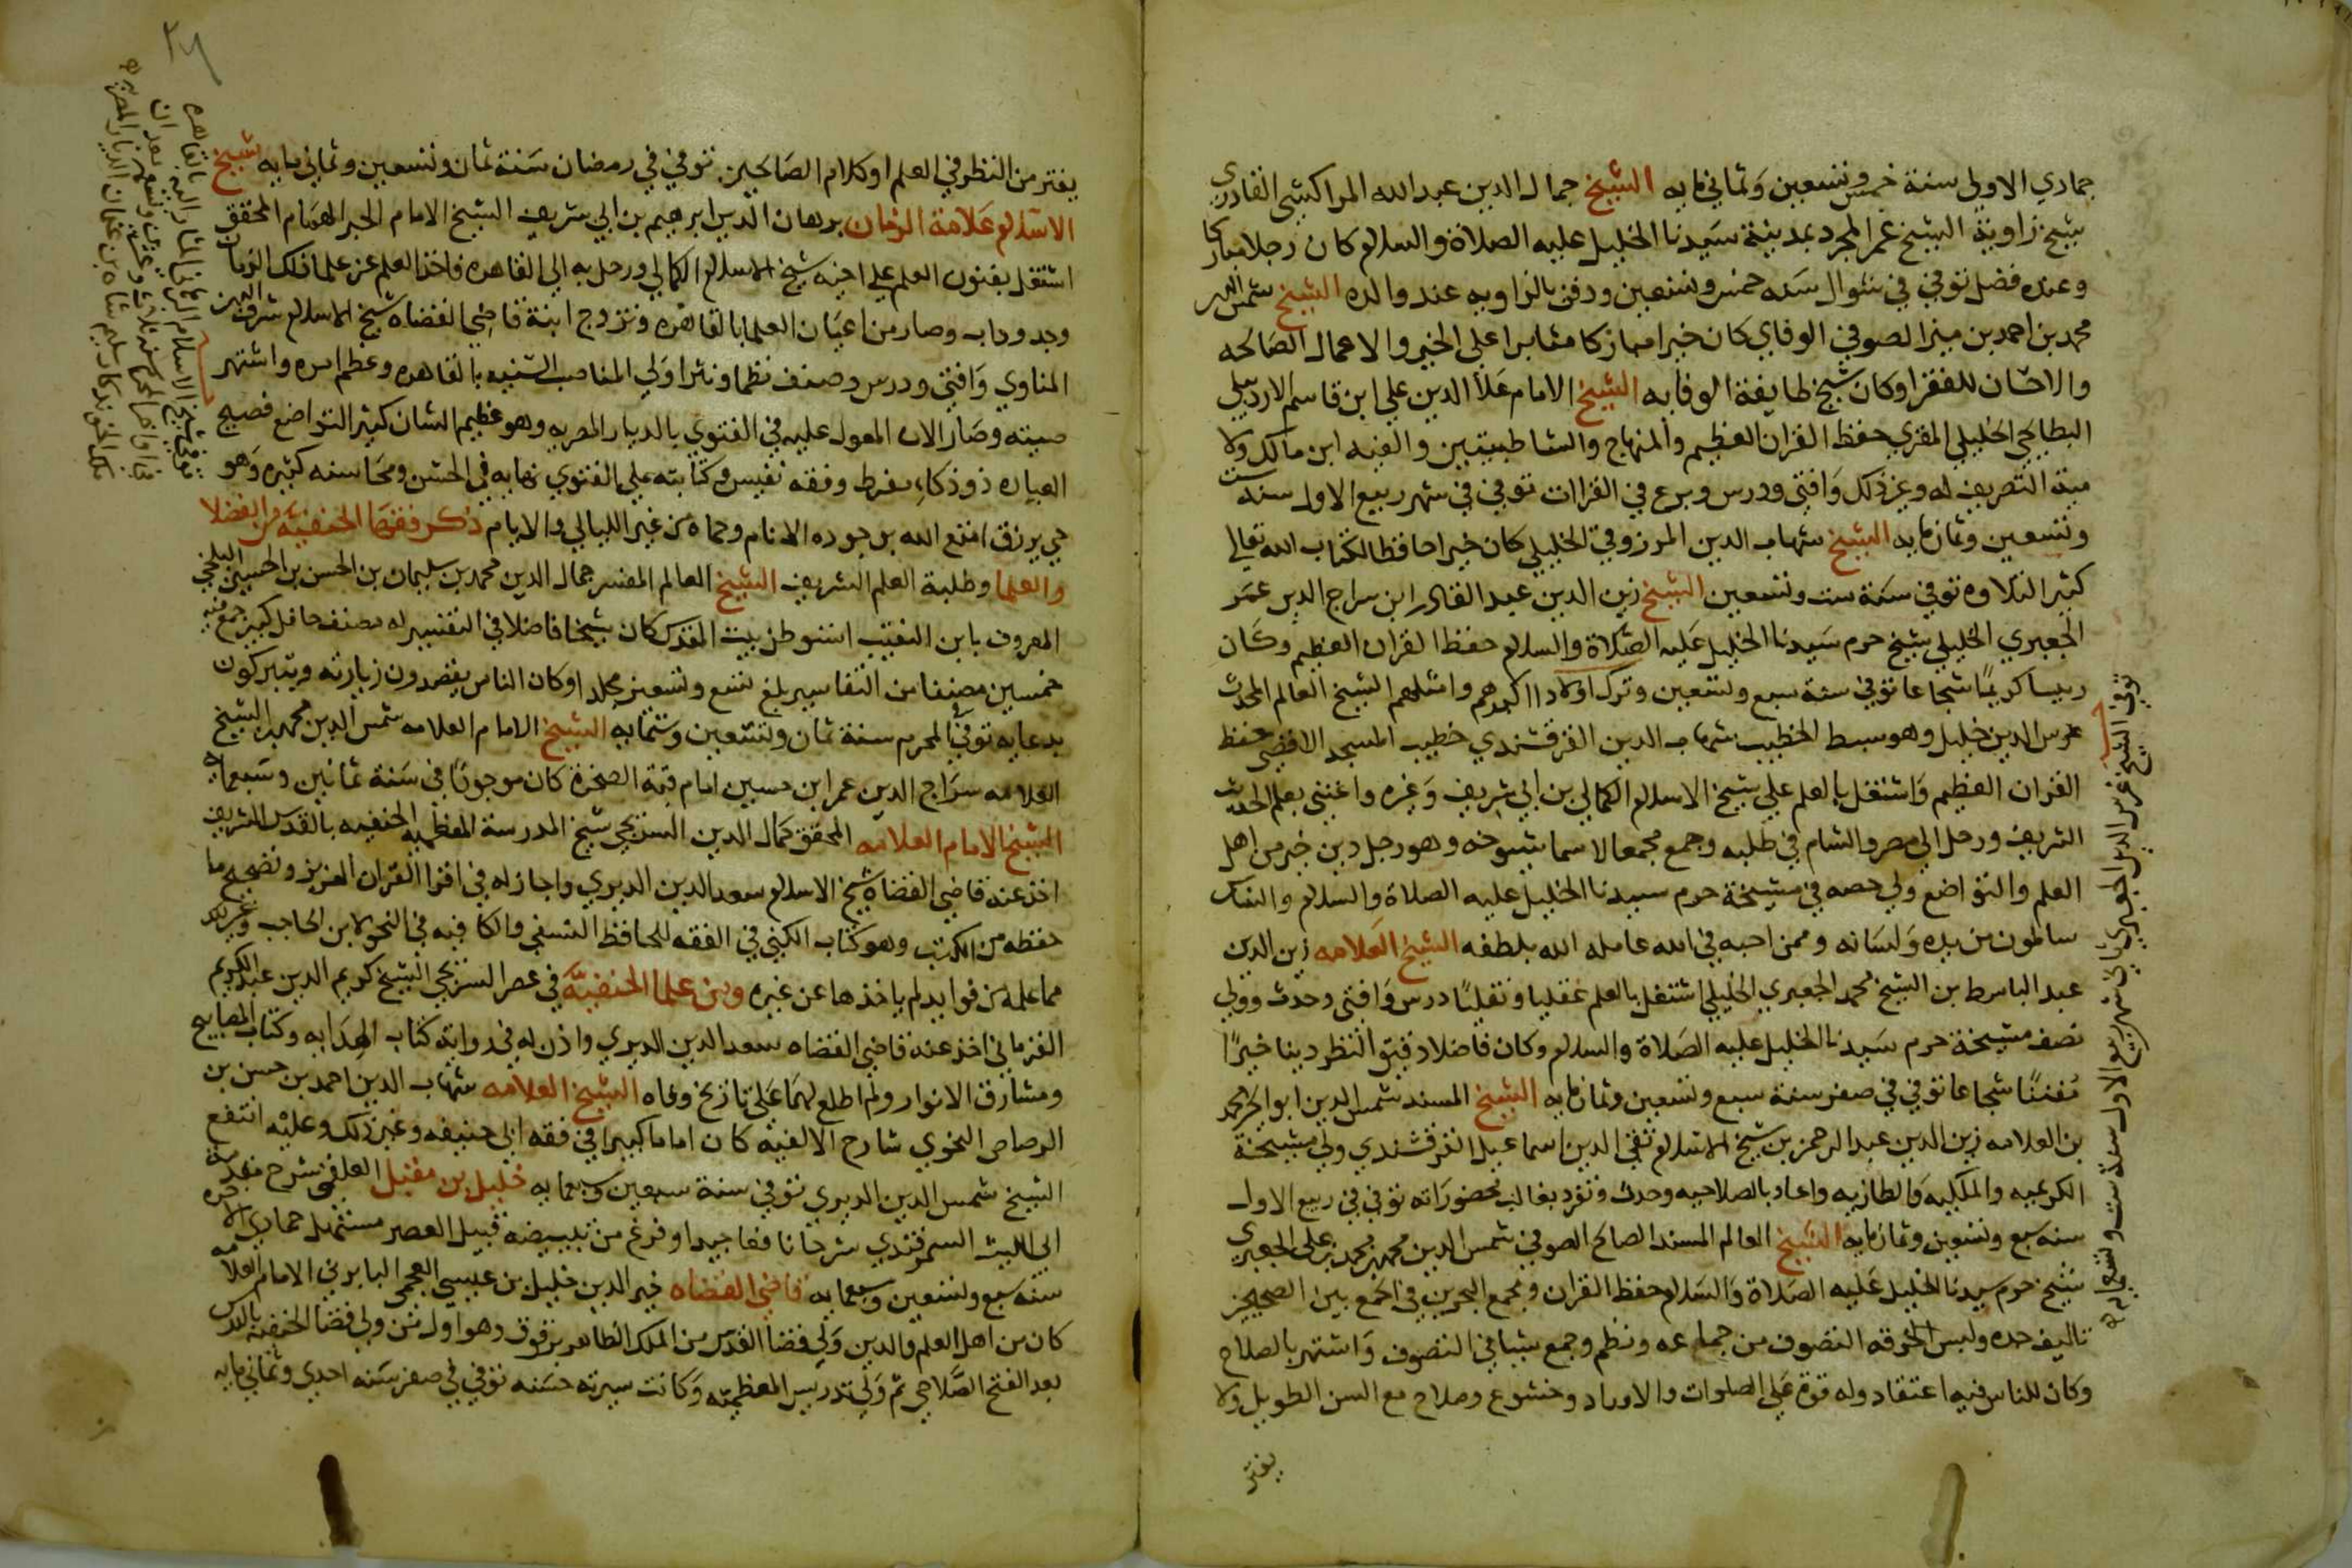 جمادي الاولي سنة خمس وتسعين وثماني مايه الشيخ جمال الدين عبد الله المراكشي القادري
شيخ زاوية الشيخ عمر المجرد بمدينة سيدنا الخليل عليه الصلاة والسلام كان رجلا مباركا
وعنده فضل توفي في شوال سنه خمس وتسعين ودفن بالزاويه عند والده الشيخ شمس الدين
محمد بن احمد بن الصوفي الوفاي كان خيرا مباركا مثابرا علي الخير والاعمال الصالحه
والاحسان للفقرا وكان شيخ طايفة الوفايه الشيخ الامام علا الدين علي ابن قاسم الاردبيلي
البطايحي الخليلي المقري حفظ القران العظيم والمنهاج والشاطبيتين والفيه ابن مالك ولا
مية التصريف له وغير ذلك وافتي ودرس وبرع في القراات توفي في شهر ربيع الاول سنة ست
وتسعين وثمان مايه الشيخ شهاب الدين المرزوقي الخليلي كان خيرا حافظا لكتاب الله تعالي
كثير التلاوه توفي سنة ست وتسعين الشيخ زين الدين عبد القادر ابن سراج الدين عمر
الجعبري الخليلي شيخ حرم سيدنا الخليل عليه الصلاة والسلام حفظ القران العظيم وكان
رييسا كريمًا شجاعا توفي سنة سبع وتسعين وترك اولادا اكبرهم وامثلهم الشيخ العالم المحدث
غرس الدين خليل وهو سبط الخطيب شهاب الدين القرقشندي خطيب المسجد الاقصي حفظ
القران العظيم واشتغل بالعلم علي شيخ الاسلام الكمالي بن ابي شريف وغيره واعتني بعلم الحديث
الشريف ورحل الي مصر والشام في طلبه وجمع معجما لاسما شيوخه وهو رجل دين خير من اهل
العلم والتواضع ولي حصه في مشيخة حرم سيدنا الخليل عليه الصلاة والسلام والناس
سالمون من يده ولسانه وممن احبه في الله عامله الله بلطفه الشيخ العلامه زين الدين
عبد الباسط بن الشيخ محمد الجعبري الخليلي اشتغل بالعلم عقليا ونقليًا درس وافتي وحدث وولي
نصف مشيخة حرم سيدنا الخليل عليه الصلاة والسلام وكان فاضلا دقيق النظر دينا خيرًا
مفننًا شجاعا توفي في صفر سنة سبع وتسعين وثمان مايه الشيخ المسند شمس الدين ابو الخير محمد
بن العلامه زين الدين عبد الرحمن بن شيخ الاسلام تقي الدين اسماعيل القرقشندي ولي مشيخة
الكريميه والملكيه والطازيه واعاد بالصلاحيه وحدث وتفرد بغالب محضوراته توفي في ربيع الاول
سنه سبع وتسعين وثمان مايه الشيخ العالم المسند الصالح الصوفي شمس الدين محمد بن محمد بن علي الجعبري
شيخ حرم سيدنا الخليل عليه الصلاة والسلام حفظ القران ومجمع البحرين في الجمع بين الصحيحين
تاليف جده ولبس الخرقه التصوف من جماعه ونظم وجمع شيا في التصوف واشتهر بالصلاح
وكان للناس فيه اعتقاد وله قوة علي الصلوات والاوراد وخشوع وصلاح مع السن الطويل ولا
يفتر
توفي الشيخ غرس الدين الجعبري في شهر ربيع الاول سنة ست وتسعمايه
يفتر من النظر في العلم او كلام الصالحين توفي في رمضان سنة ثمان وتسعين وثماني مايه شيخ
الاسلام علامة الزمان برهان الدين ابرهيم بن ابي شريف الشيخ الامام الحبر الهمام المحقق
اشتغل بفنون العلم علي اخيه شيخ الاسلام الكمالي ورحل به الي القاهره فاخذ العلم عن علما ذلك الزمان
وجد وداب وصار من اعيان العلما بالقاهره وتزوج ابنة قاضي القضاه شيخ الاسلام شرف الدين
المناوي وافتي ودرس وصنف نظما ونثرا وولي المناصب السنيه بالقاهره وعظم امره واشتهر
صيته وصار الان المعول عليه في الفتوي بالديار المصريه وهو عظيم الشان كثير التواضع فصيح
العباره ذو ذكاء مفرط وفقه نفيس وكتابته علي الفتوي نهايه في الحسن ومحاسنه كثيره وهو
حي يرزق امتع الله بوجوده الانام وحماه من غير الليالي والايام ذكر فقها الحنفية من الفضلا
والعلما وطلبة العلم الشريف الشيخ العالم المفسر جمال الدين محمد بن سليمان بن الحسن بن الحسين البلخي
المعروف بابن النقيب استوطن بيت المقدس كان شيخا فاضلا في التفسير له مصنف حافل كبير جمع فيه
خمسين مصنفا من التفاسير بلغ تسع وتسعين مجلدا وكان الناس يقصدون زيارته ويتبركون
بدعايه توفي في المحرم سنة ثمان وتسعين وستمايه الشيخ الامام العلامه شمس الدين محمد بن الشيخ
العلامه سراج الدين عمر ابن حسين امام قبة الصخرة كان موجودًا في سنة ثمانين وسبعمايه
الشيخ الامام العلامه المحقق كمال الدين السنريجي شيخ المدرسة المعظميه الحنفيه بالقدس الشريف
اخذ عنه قاضي القضاة شيخ الاسلام سعد الدين الديري واجاز له في اقرا القران العزيز وتصحيح ما
حفظه من الكتب وهو كتاب الكنز في الفقه للحافظ النسفي والكافيه في النحو لابن الحاجب وغير ذلك
مما علمه من فوايد لم ياخذها عن غيره ومن علما الحنفيّة في عصر السنريجي الشيخ كريم الدين عبد الكريم
القرماني اخذ عنه قاضي القضاه سعد الدين الديري واذن له في رواية كتاب الهدايه وكتاب المصابيح
ومشارق الانوار ولم اطلع لهما علي تاريخ وفاه الشيخ العلامه شهاب الدين احمد بن حسن بن
الرصاص النحوي شارح الالفيه كان اماما كبيرا في فقه ابي حنيفه وغير ذلك وعليه انتفع
الشيخ شمس الدين الديري توفي سنة سبعين وسبعمايه خليل بن مقبل العلقمي شرح مقدمة
ابي الليث السمرقندي شرحا نافعا جيدا وفرغ من تبييضه قبيل العصر مستهل جمادي الاخره
سنه سبع وتسعين وسبعمايه قاضي القضاه خير الدين خليل بن عيسي العجمي البابرتي الامام العلامه
كان من اهل العلم والدين ولي قضا القدس من الملك الظاهر برقوق وهو اول من ولي قضا الحنفيه بالقدس
بعد الفتح الصّلاحي ثم ولي تدريس المعظميّه وكانت سيرته حسنه توفي في صفر سنه احدي وثماني مايه
توفي شيخ الاسلام البرهاني المشار اليه بالقاهره